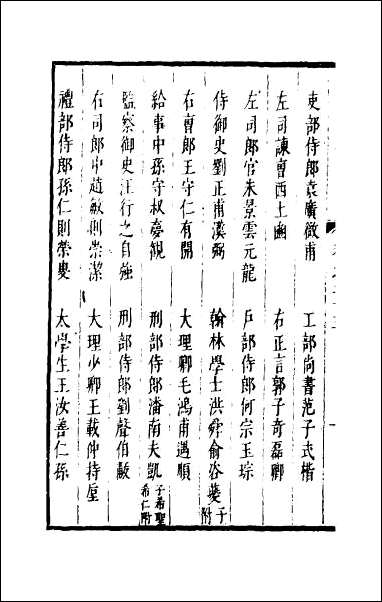 吏部侍郎袁廣微甫
工部尚書范子式楷
左司諫曹西士豳
右正言郭子奇磊卿
左司郎官朱景雲元龍
戶部侍郎何宗玉琮
侍御史劉正甫漢弼
翰林學士洪舜俞咨夔子附
右曹郎王守仁有開
大理卿毛鴻甫遇順
給事中孫守叔夢觀
刑部侍郎潘南夫凱子希聖希仁附
監察御史汪行之自強
刑部侍郎劉聲伯黻
右司郎中趙敏則崇潔
大理少卿王載仲持垕
禮部侍郎孫仁則榮叟
太學生王汝善仁孫